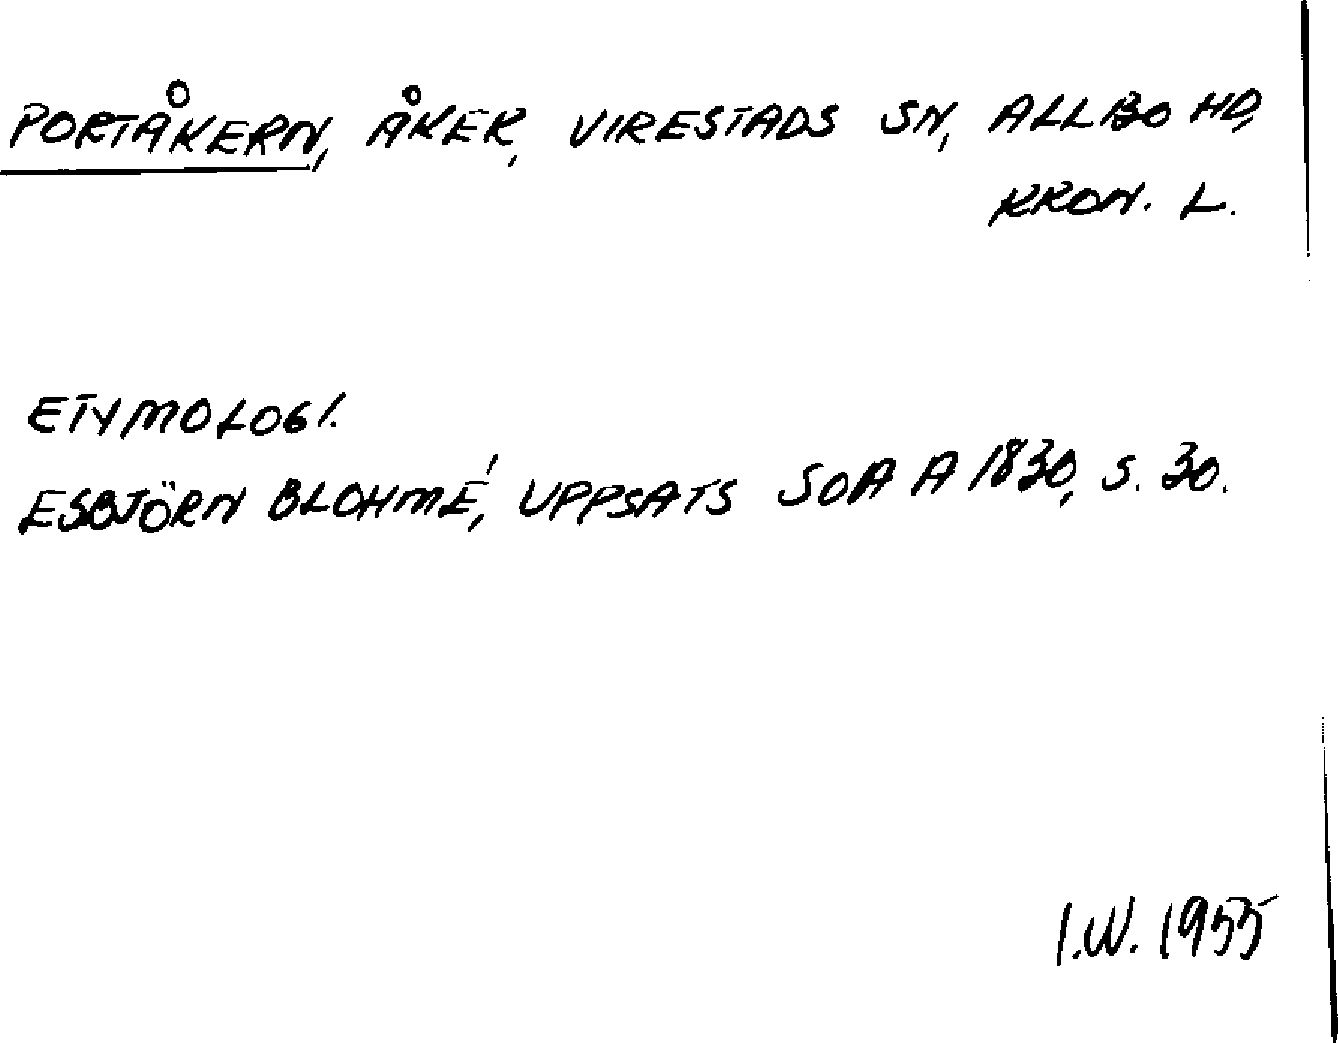 PORTÅKERN, ÅKER, VIRESTADS SN, ALLBO HD,
KRON. L.
ETYMOLOGI.
ESBJÖRN BLOHMÉ, UPPSATS SOA A 1830, S. 30.
I.W. 1955